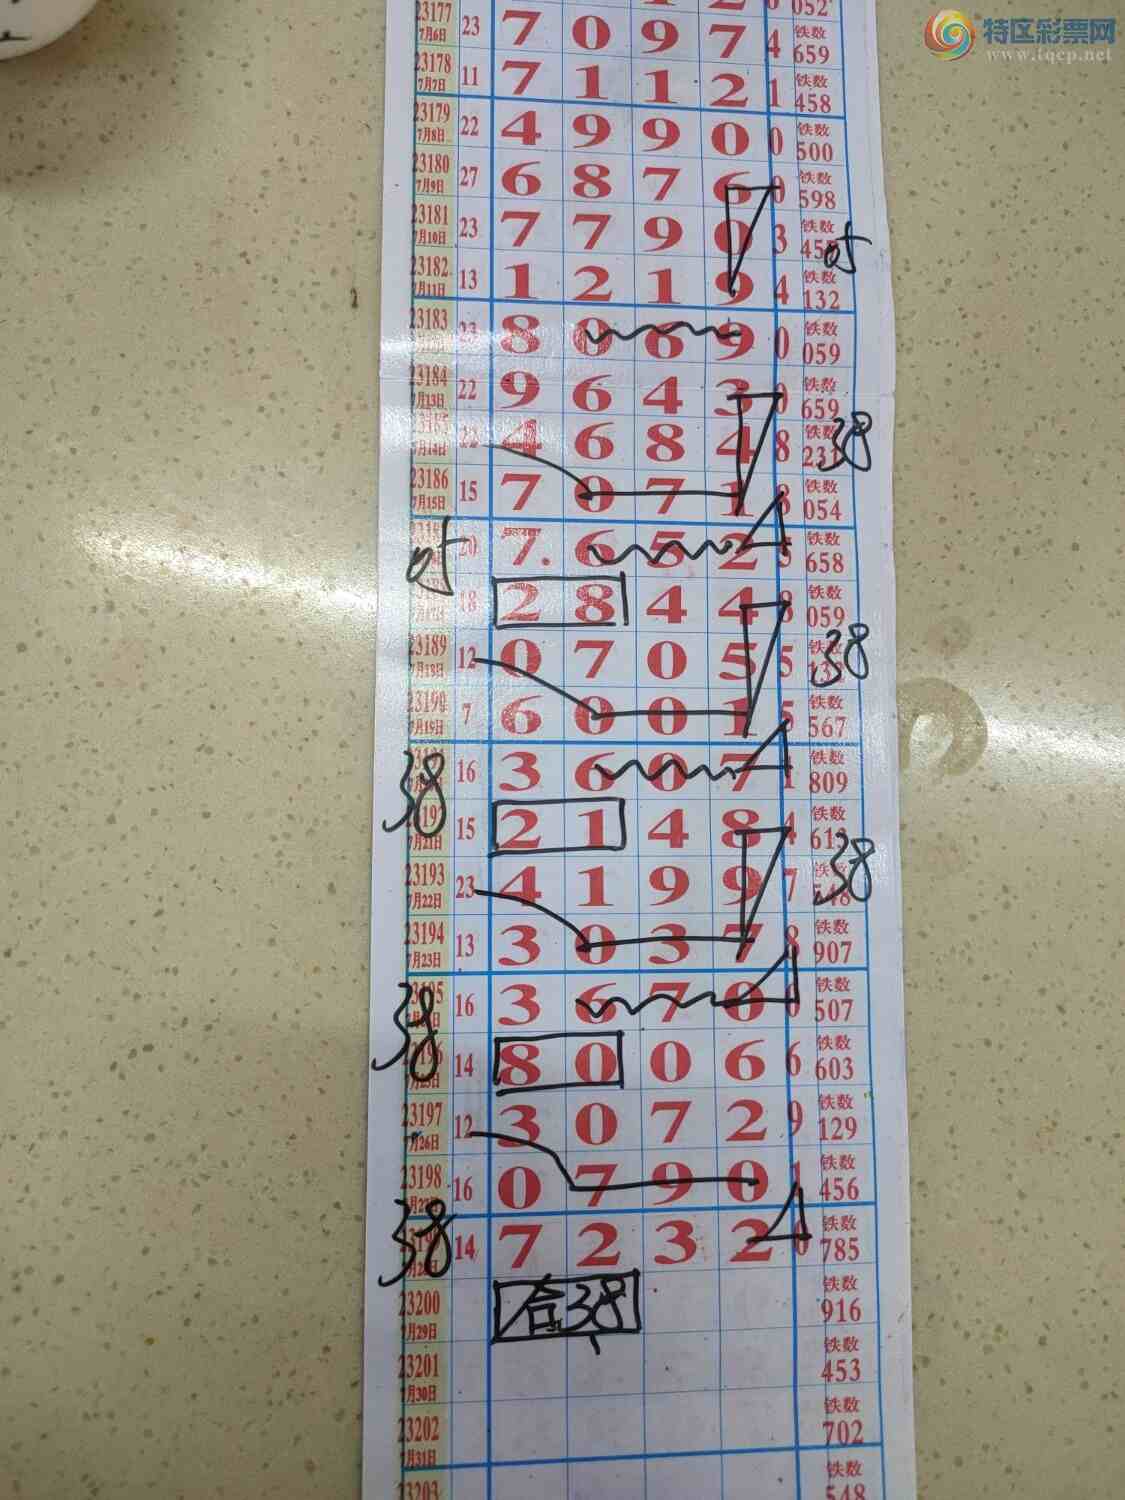 特区彩票网
www.tqcp.net
052
23177 7月6日 23 7 0 9 7 4 铁数 659
23178 7月7日 11 7 1 1 2 1 铁数 458
23179 7月8日 22 4 9 9 0 0 铁数 500
23180 7月9日 27 6 8 7 6 0 铁数 598
23181 7月10日 23 7 7 9 0 3 铁数 45
05
23182 7月11日 13 1 2 1 9 4 铁数 132
23183 23 8 0 6 9 0 铁数 059
23184 7月13日 22 9 6 4 3 0 铁数 659
23185 7月14日 22 4 6 8 4 8 铁数 231
38
23186 7月15日 15 7 0 7 1 8 铁数 054
05
20 7. 6 5 2 铁数 658
18 2 8 4 4 8 铁数 059
23189 7月18日 12 0 7 0 5 5 铁数
38
23190 7月19日 7 6 0 0 1 5 铁数 567
38
16 3 6 0 7 1 铁数 809
7月21日 15 2 1 4 8 4 铁数 613
23193 7月22日 23 4 1 9 9 7 铁数 548
38
23194 7月23日 13 3 0 3 7 8 铁数 907
38
23195 16 3 6 7 0 铁数 507
14 8 0 0 6 6 铁数 603
23197 7月26日 12 3 0 7 2 9 铁数 129
23198 16 0 7 9 0 1 铁数 456
38
14 7 2 3 2 铁数 785
23200 7月29日 合38 铁数 916
23201 7月30日 铁数 453
23202 7月31日 铁数 702
23203 铁数 548